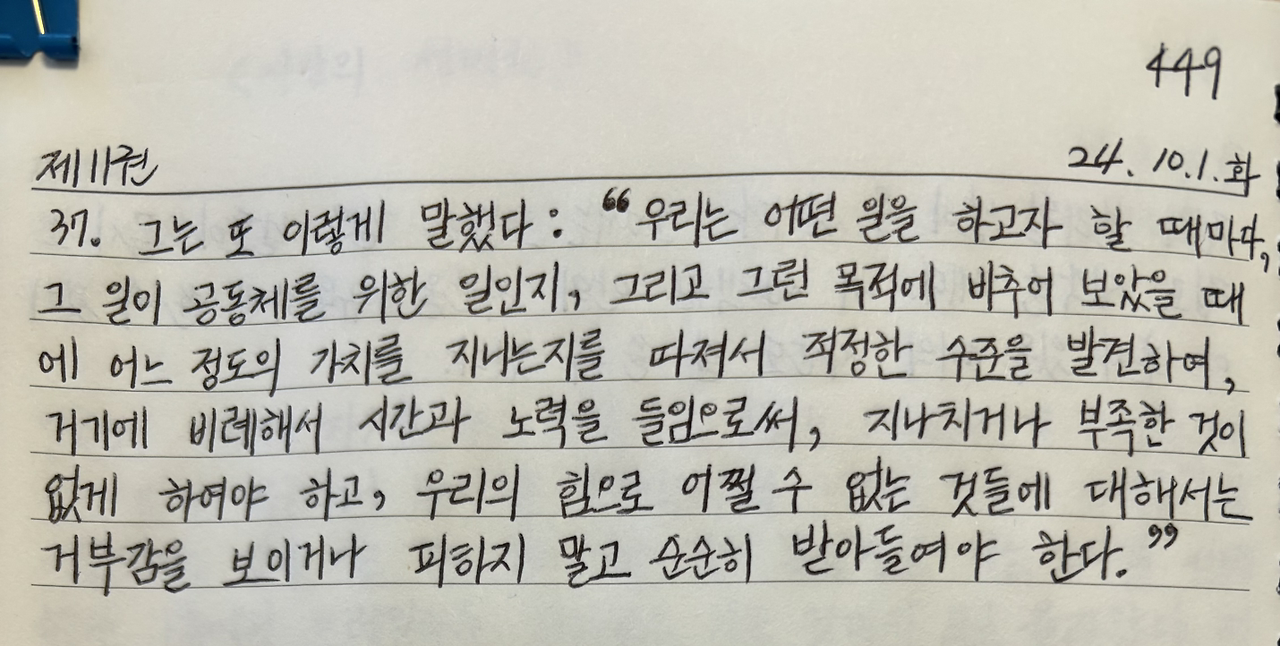 449
제11권
24. 10.1. 화
37. 그는 또 이렇게 말했다: “우리는 어떤 일을 하고자 할 때마다,
그 일이 공동체를 위한 일인지, 그리고 그런 목적에 비추어 보았을 때
에 어느 정도의 가치를 지니는지를 따져서 적정한 수준을 발견하여,
거기에 비례해서 시간과 노력을 들임으로써, 지나치거나 부족한 것이
없게 하여야 하고, 우리의 힘으로 어쩔 수 없는 것들에 대해서는
거부감을 보이거나 피하지 말고 순순히 받아들여야 한다.”